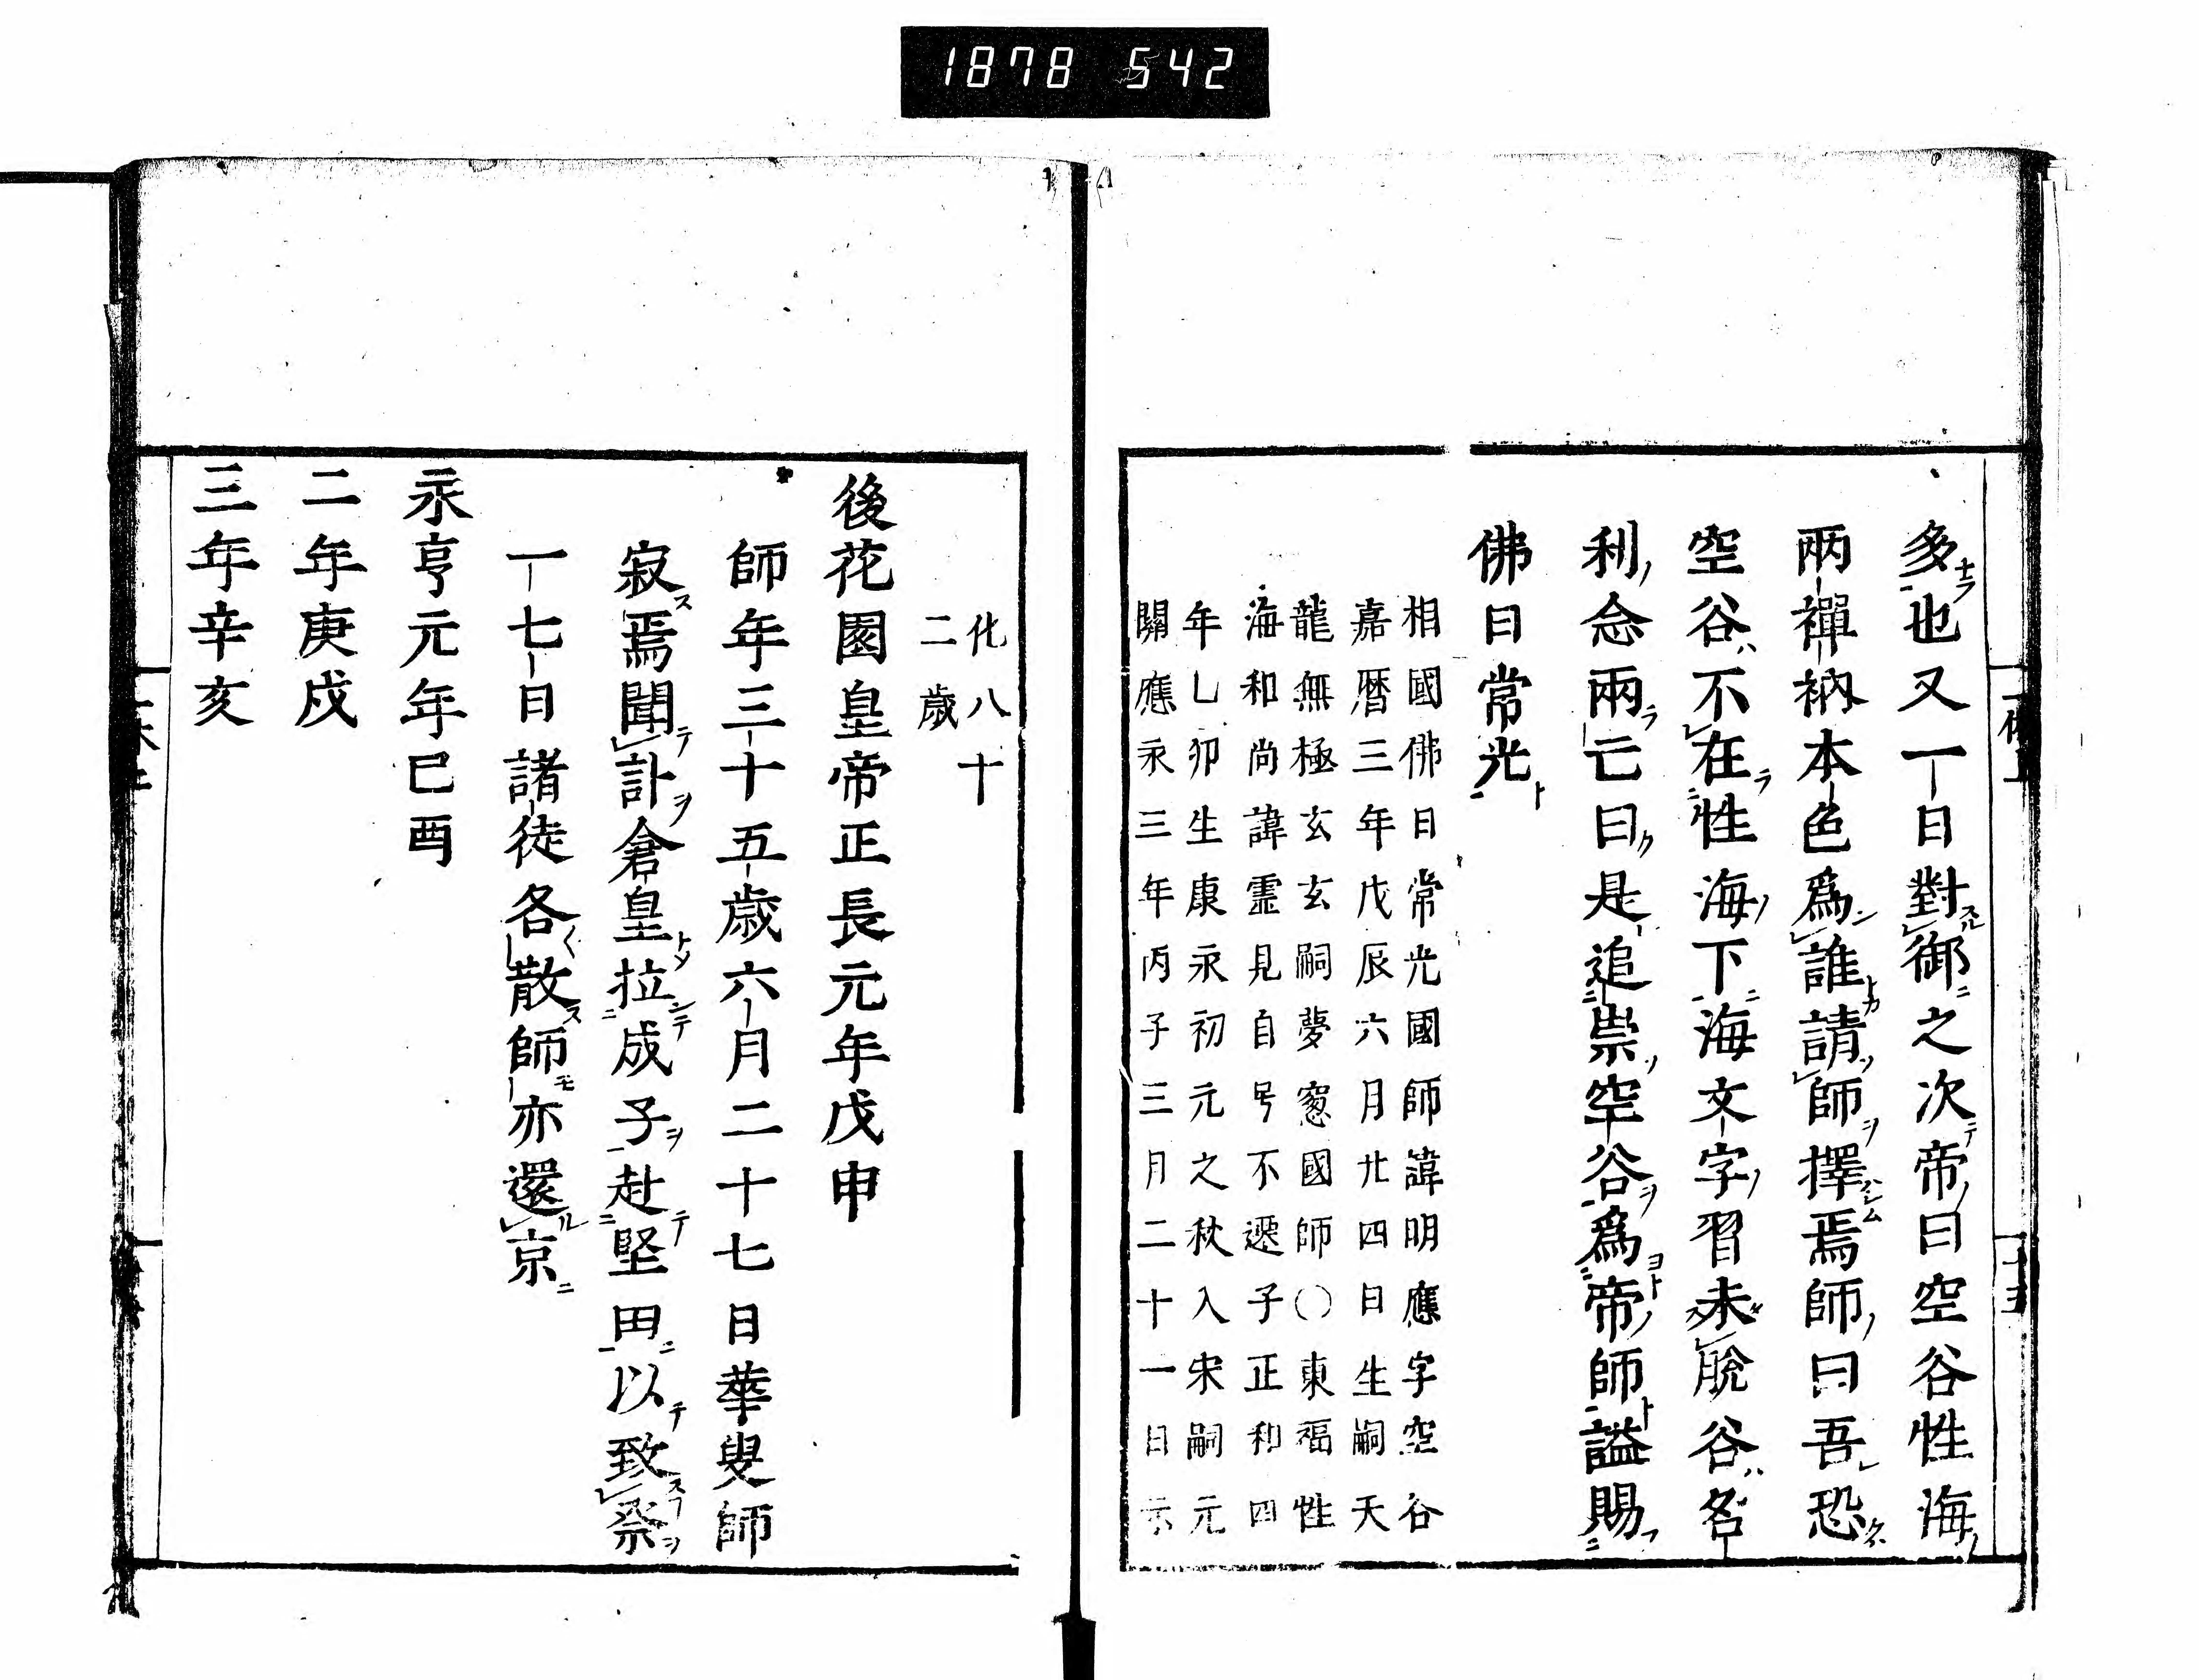 1878 542
多也又一日對御之次帝曰空谷性海
兩禪衲本色爲誰請師擇焉師曰吾恐
空谷不在性海下海文字習未脫谷名
利念兩亡曰是追崇空谷爲帝師謚賜
佛日常光
相國佛日常光國師諱明應字空谷
嘉暦三年戊辰六月廿四日生嗣天
龍無極玄玄嗣夢窓國師〇東福性
海和尚諱霊見自号不遷子正和四
年乚卯生康永初元之秋入宋嗣元
關應永三年丙子三月二十一日示
化八十
二歳
後花園皇帝正長元年戊申
師年三十五歳六月二十七日華叟師
寂焉聞訃倉皇拉成子赴堅田以致祭
一七日諸徒各散師亦還京
永亨元年巳酉
二年庚戌
三年辛亥